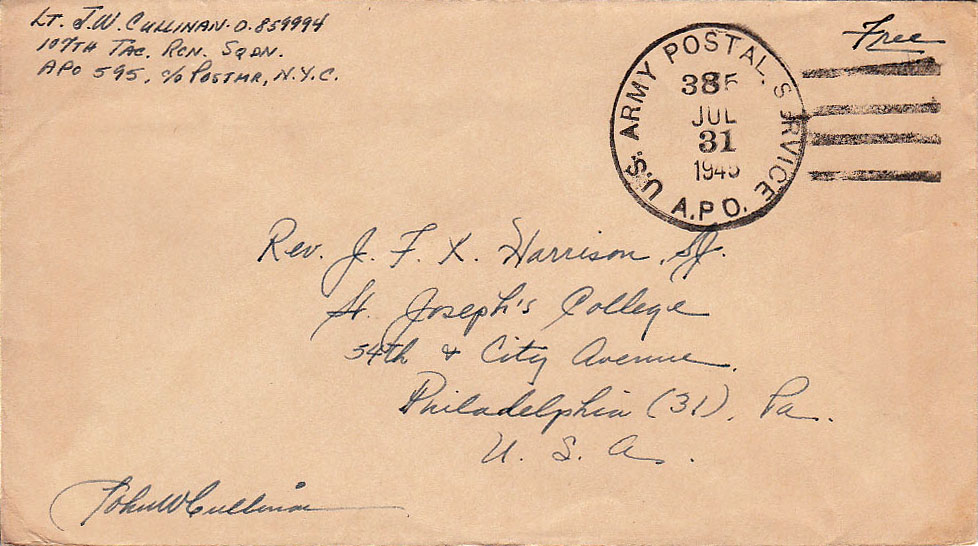 Lt. J. W. Cullinan - O-859994
107th Tac. Rcn. Sqdn.
APO 595, c/o Postmr, N.Y.C.
Free
U.S. ARMY POSTAL S RVICE
JUL
31
1945
A.P.O.
Rev. J. F. X. Harrison, S.J.
St. Joseph's College
54th & City Avenue
Philadelphia (31), Pa.
U. S. A.
John W Cullinan